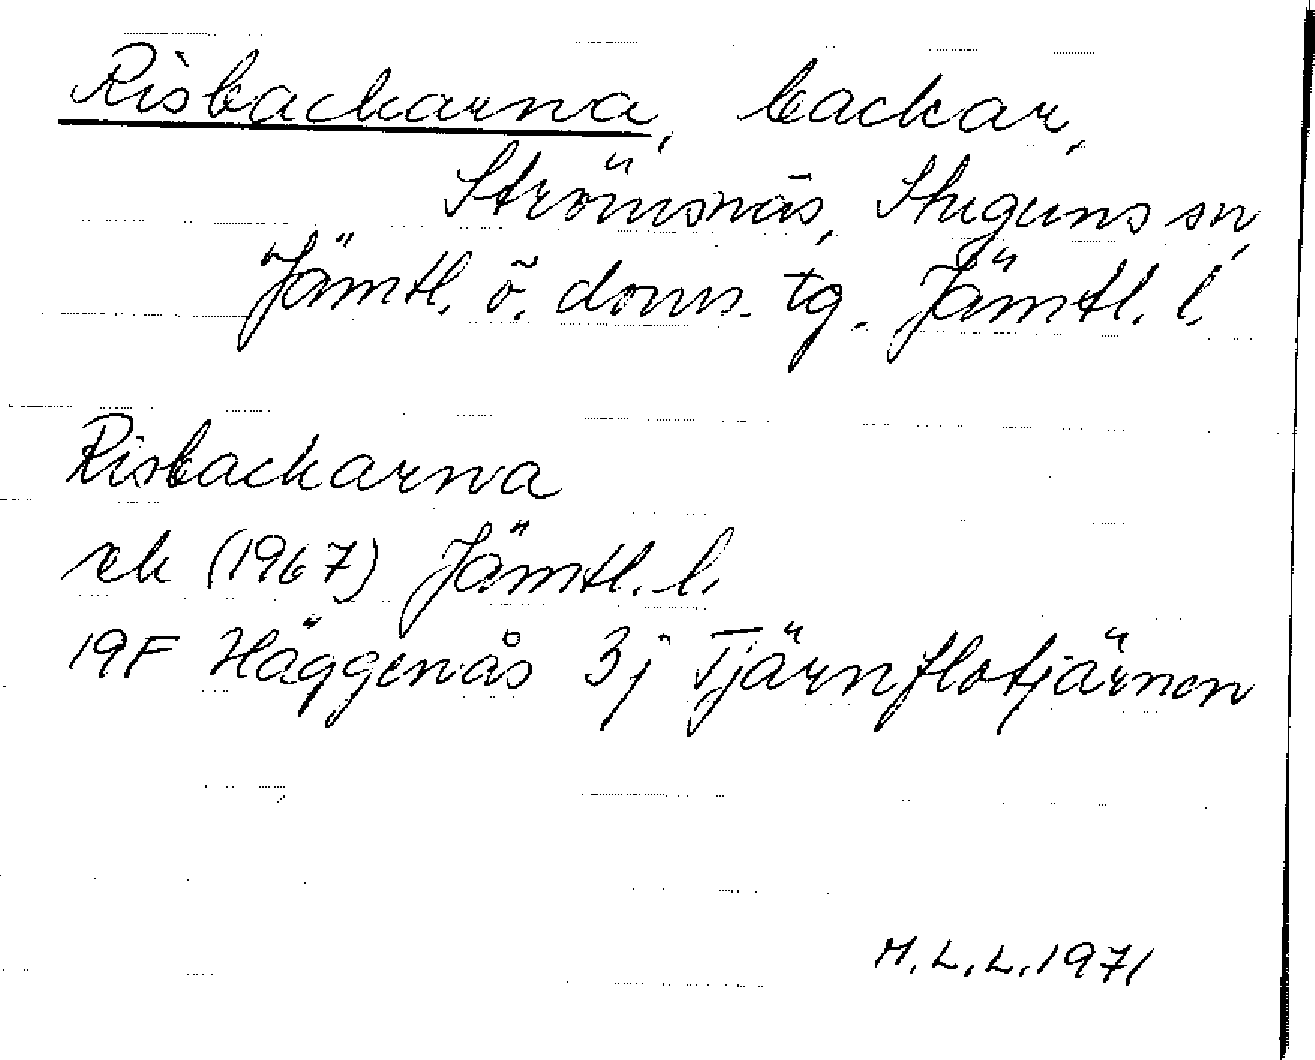 Risbackarna, backar,
Strömsnäs, Stuguns sn,
Jämtl. ö. doms. tg. Jämtl. l.
Risbackarna
rek (1967) Jämtl. l.
19F Häggenås 3j Tjärnflotjärnen
M.L.L. 1971